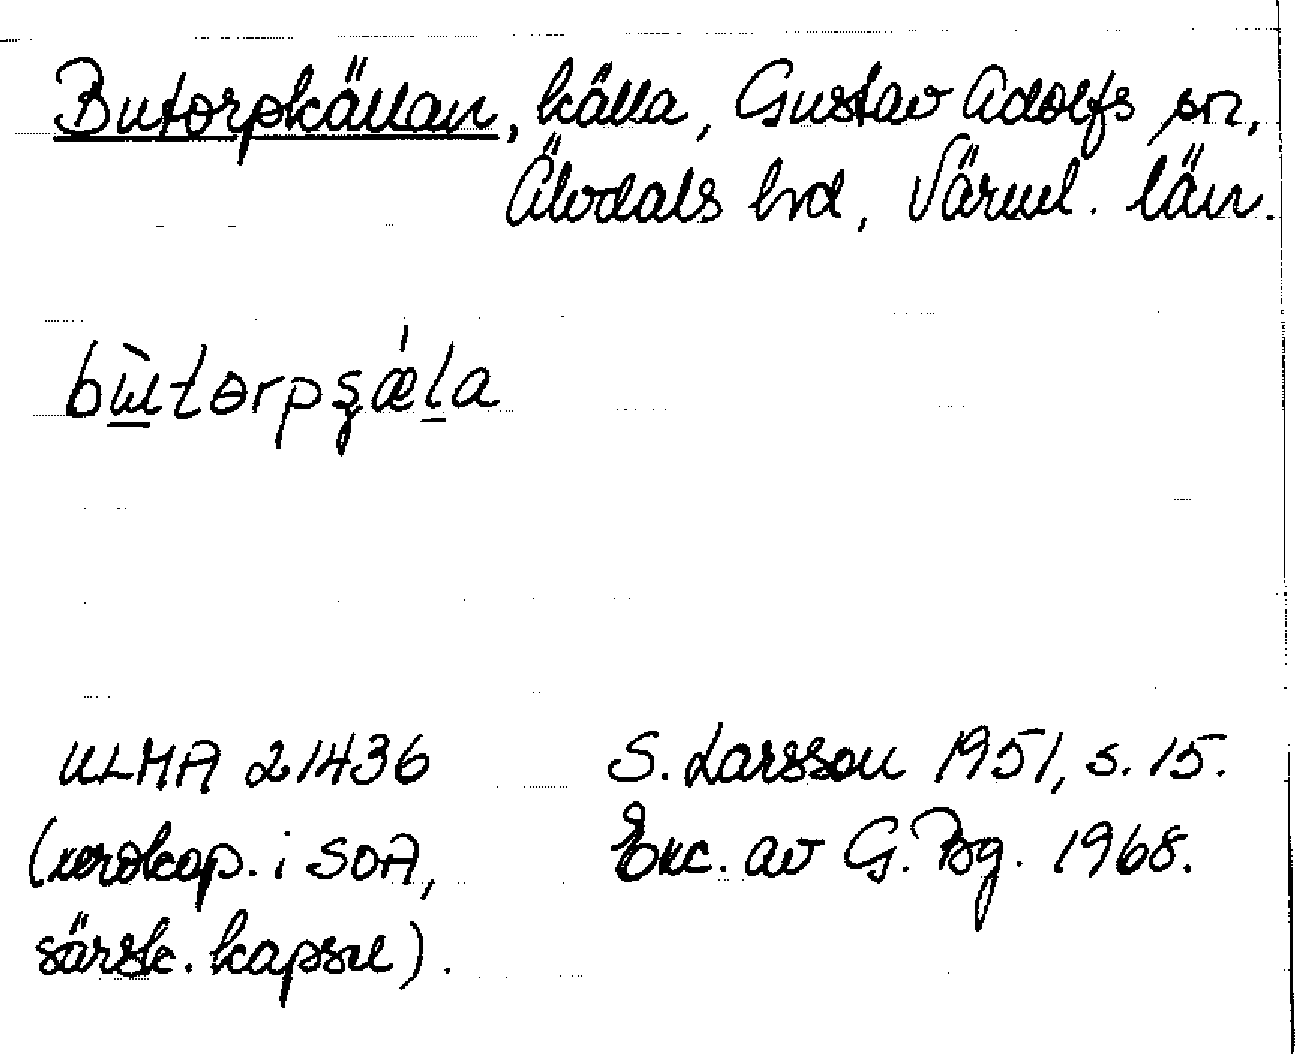 Butorpkällan, källa, Gustav Adolfs sn,
Älvdals hrd, Värml. län.
bɯ̀torpʂǽla
ULMA 21436
(xerokop. i SOA,
särsk. kapsel).
S. Larsson 1951, s. 15.
Exc. av G. Bg. 1968.